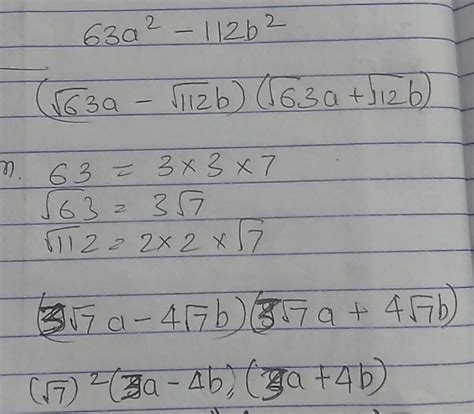 63a² - 112b²
(√63a - √112b)(√63a + √112b)
n. 63 = 3 × 3 × 7
√63 = 3√7
√112 = 2 × 2 × √7
(3√7a - 4√7b)(3√7a + 4√7b)
(√7)²(3a - 4b)(3a + 4b)